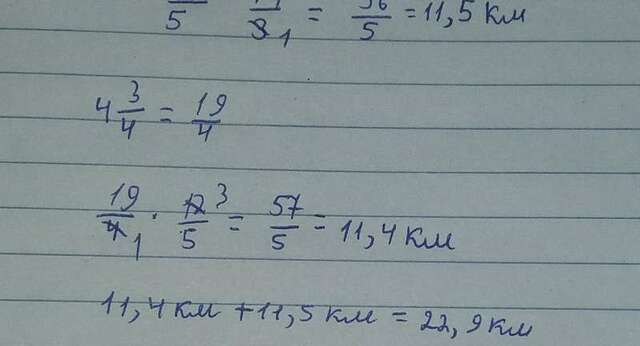 /5 /3 1 = 56/5 = 11,5 км
4 3/4 = 19/4
19/4 1 · 12/5 3 = 57/5 = 11,4 км
11,4 км + 11,5 км = 22,9 км